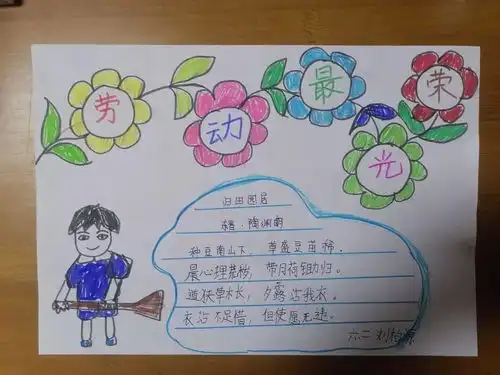 劳动最光荣
归田园居
东晋·陶渊明
种豆南山下，草盛豆苗稀。
晨心理荒秽，带月荷锄归。
道狭草木长，夕露沾我衣。
衣沾不足惜，但使愿无违。
六二 刘柏源